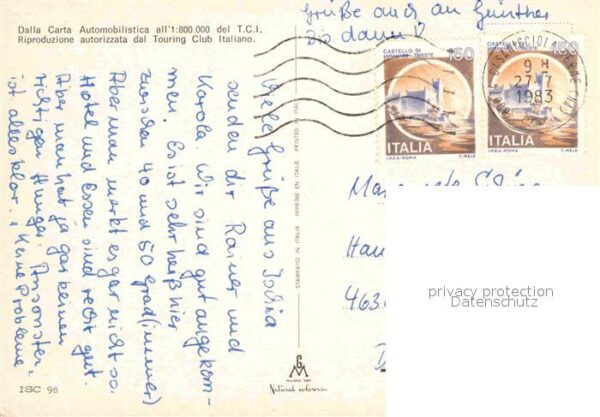 Dalla Carta Automobilistica all'1:800.000 del T.C.I.
Riproduzione autorizzata dal Touring Club Italiano.
Grüße auch an Günther
Bis dann
Viele Grüße aus Ischia
senden dir Rainer und
Karola. Wir sind gut angekom-
men. Es ist sehr heiß hier
zwischen 40 und 50 grad (immer)
Aber man merkt es gar nicht so.
Hotel und Essen sind recht gut.
Aber man hat ja gar keinen
richtigen Hunger. Ansonsten
ist alles klar. "Keine Probleme"
STAMPATO IN ITALIA IMPRIMÉ EN ITALIE PRINTED IN ITALY
CASTELLO DI
MIRAMARE - TRIESTE
150
ITALIA
I.P.Z.S.-ROMA T. MELE
CASTELLO DI
150
ITALIA
I.P.Z.S.-ROMA T. MELE
9 H
27-7
1983
463
privacy protection
Datenschutz
GM
Natural colours
ISC 98